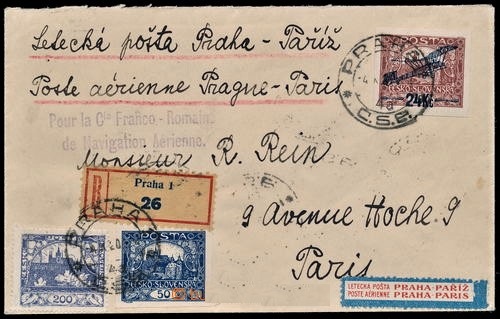 Letecká pošta Praha - Paříž
Poste aérienne Prague - Paris
Pour la Cie Franco - Romaine
de Navigation Aérienne.
POSTA
ČESKO-SLOVENSKÁ
24Kč
PRAHA
Č.S.P.
Monsieur R. Rein
R
Praha 1
26
9 Avenue Hoche 9
Paris
PRAHA
200
POSTA
ČESKO-SLOVENSKÁ
50
LETECKÁ POŠTA PRAHA-PAŘÍŽ
POSTE AÉRIENNE PRAHA-PARIS